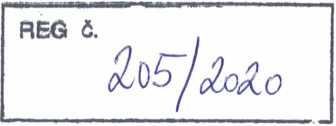 REG č.
205/2020